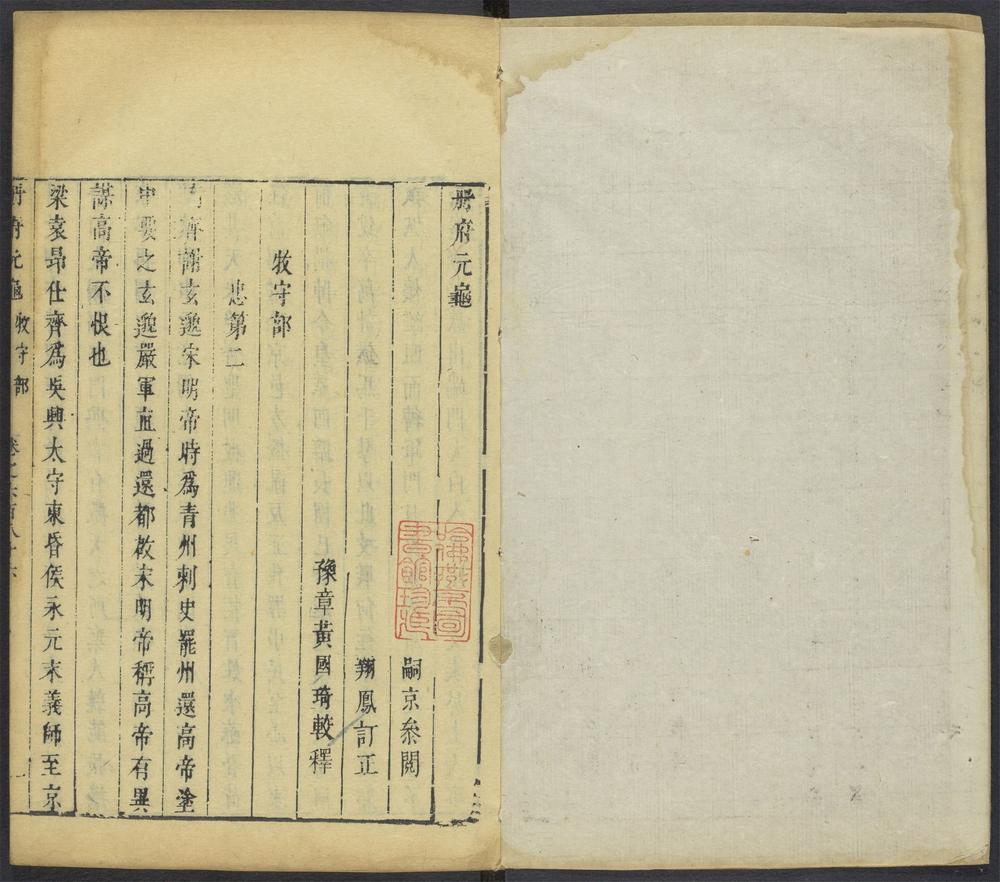 冊府元龜
嗣京叅閱
翔鳳訂正
豫章黃國琦較釋
牧守部
第二
玄邈宋明帝時爲青州刺史罷州還高帝塗
中要之玄邈嚴軍直過還都啟宋明帝稱高帝有異
謀高帝不恨也
梁袁昂仕齊爲吳興太守東昏侯永元末義師至京
冊府元龜 牧守部
哈佛燕京圖書館珍藏